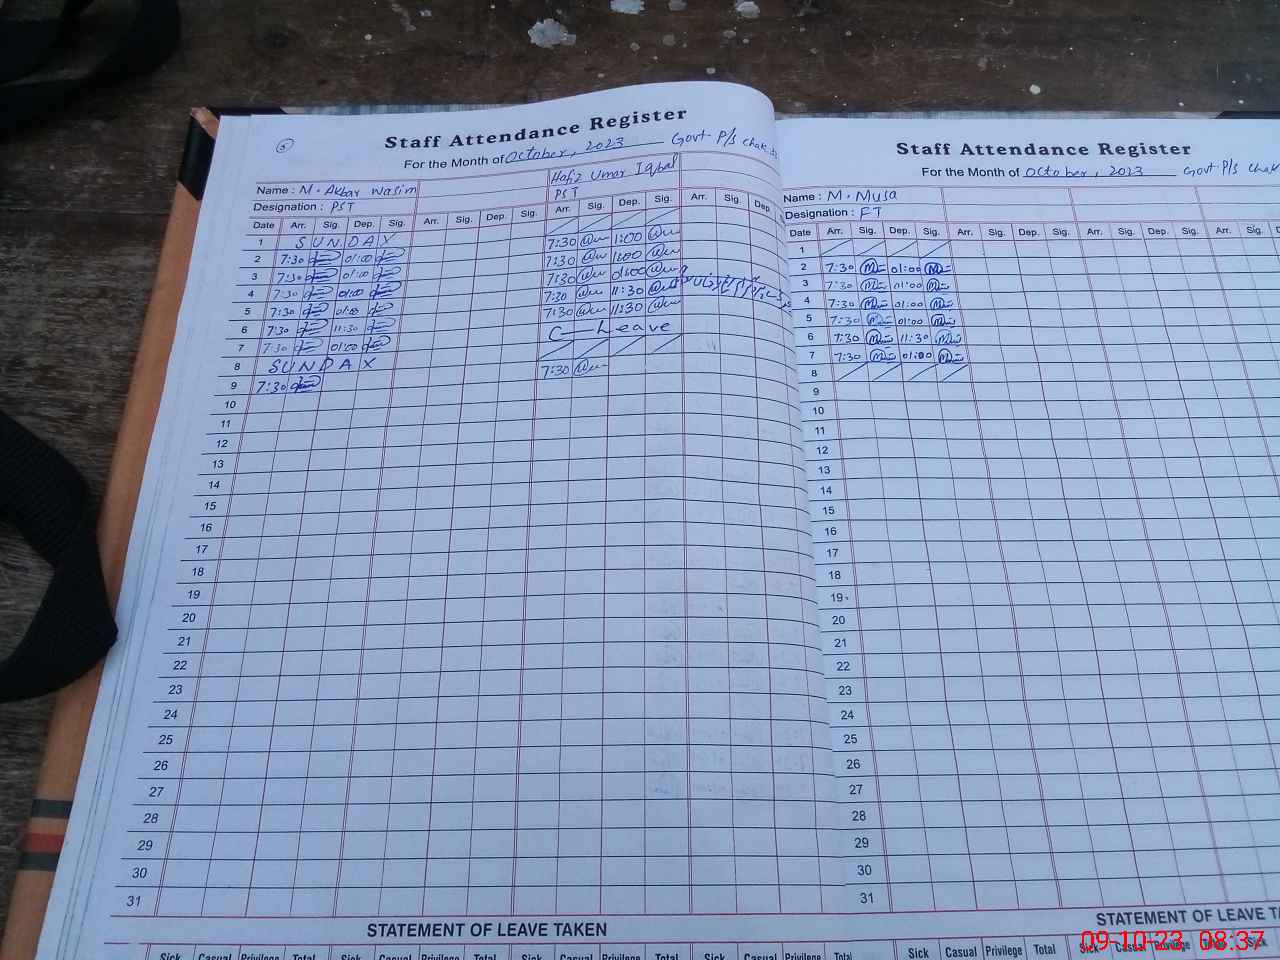 Staff Attendance Register
For the Month of October, 2023 Govt. P/s Chak
Name : M. Akbar Wasim Hafiz Umar Iqbal
Designation : PST PST
Date Arr. Sig. Dep. Sig. Arr. Sig. Dep. Sig. Arr. Sig. Dep. Sig. Arr. Sig. Dep.
1 SUNDAY
2 7:30 01:00 7:30 1:00
3 7:30 01:00 7:30 1:00
4 7:30 01:00 7:30 01:00
5 7:30 01:00 7:30 11:30
6 7:30 11:30 7:30 11:30
7 7:30 01:00 C Leave
8 SUNDAY
9 7:30 7:30
10
11
12
13
14
15
16
17
18
19
20
21
22
23
24
25
26
27
28
29
30
31
STATEMENT OF LEAVE TAKEN
Sick Casual Privilege Total Sick Casual Privilege Total Sick Casual Privilege Total
Staff Attendance Register
For the Month of October, 2023 Govt P/s Chak
Name : M. Musa
Designation : FT
Date Arr. Sig. Dep. Sig. Arr. Sig. Dep. Sig. Arr. Sig. Dep. Sig. Arr. Sig.
1
2 7:30 01:00
3 7:30 01:00
4 7:30 01:00
5 7:30 01:00
6 7:30 11:30
7 7:30 01:00
8
9
10
11
12
13
14
15
16
17
18
19
20
21
22
23
24
25
26
27
28
29
30
31
STATEMENT OF LEAVE
Sick Casual Privilege Total Sick Casual Privilege Total Sick
09-10-23 08:37